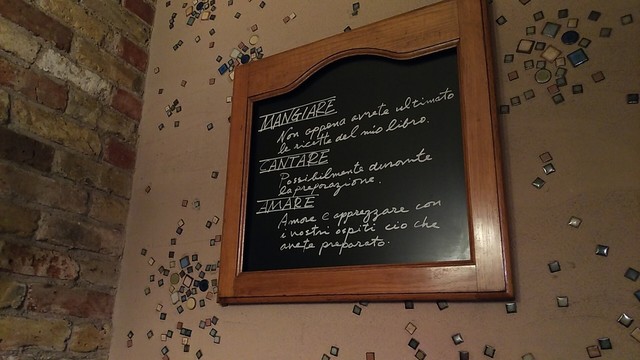 MANGIARE
Non appena avrete ultimato
le ricette del mio libro.
CANTARE
Possibilmente durante
la preparazione.
AMARE
Amare e apprezzare con
i nostri ospiti cio che
avete preparato.